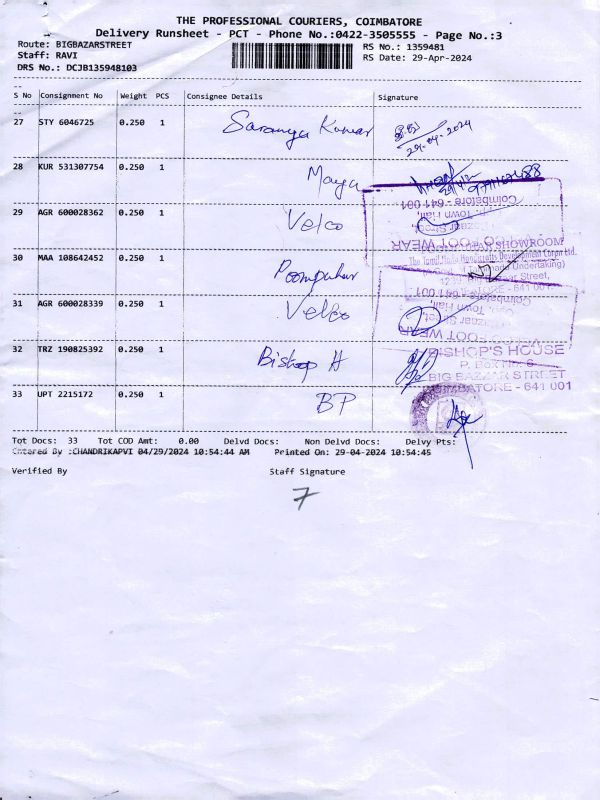 THE PROFESSIONAL COURIERS, COIMBATORE
Delivery Runsheet - PCT - Phone No.:0422-3505555 - Page No.:3
Route: BIGBAZARSTREET
RS No.: 1359481
Staff: RAVI
RS Date: 29-Apr-2024
DRS No.: DCJB135948103
S No Consignment No Weight PCS Consignee Details Signature
27 STY 6046725 0.250 1 Saranya Kumar
29-04-2024
28 KUR 531307754 0.250 1 Maya
Coimbatore - 641 001
Town Hall,
29 AGR 600028362 0.250 1 Velco
FOOT WEAR
SHOWROOM
The Tamil Nadu Handicrafts Development Corpn Ltd.
Undertaking)
30 MAA 108642452 0.250 1 Poompuhar
Street,
- 641 001
Coimbatore - 641 001
Town Hall,
31 AGR 600028339 0.250 1 Velco
FOOT WEAR
32 TRZ 190825392 0.250 1 Bishop H
BISHOP'S HOUSE
P. Box No. 6
BIG BAZAAR STREET
COIMBATORE - 641 001
33 UPT 2215172 0.250 1 BP
Tot Docs: 33 Tot COD Amt: 0.00 Delvd Docs: Non Delvd Docs: Delvy Pts:
Entered By :CHANDRIKAPVI 04/29/2024 10:54:44 AM Printed On: 29-04-2024 10:54:45
Verified By Staff Signature
7